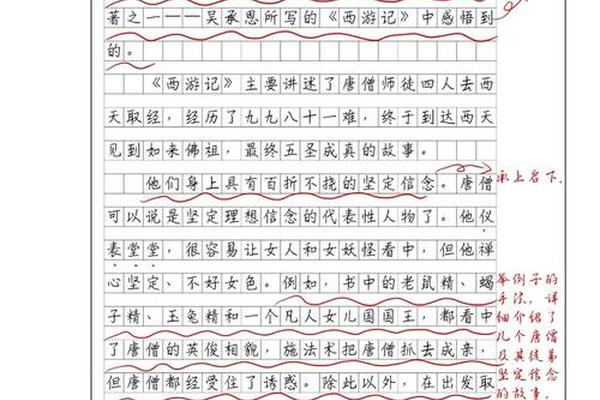 著之一——吴承恩所写的《西游记》中感悟到
的。
《西游记》主要讲述了唐僧师徒四人去西
天取经,经历了九九八十一难,终于到达西天
见到如来佛祖,最终五圣成真的故事。
他们身上具有百折不挠的坚定信念。唐僧
承上启下.
可以说是坚定理想信念的代表性人物了。他仪
表堂堂,很容易让女人和女妖怪看中,但他禅
心坚定、不好女色。例如,书中的老鼠精、蝎
子精、玉兔精和一个凡人女儿国国王,都看中
了唐僧的英俊相貌,施法术把唐僧抓去成亲,
但唐僧都经受住了诱惑。除此以外,在出发取
举例子的
手法,详
细介绍了
几个唐僧
及其徒弟
坚定信念
的故事,